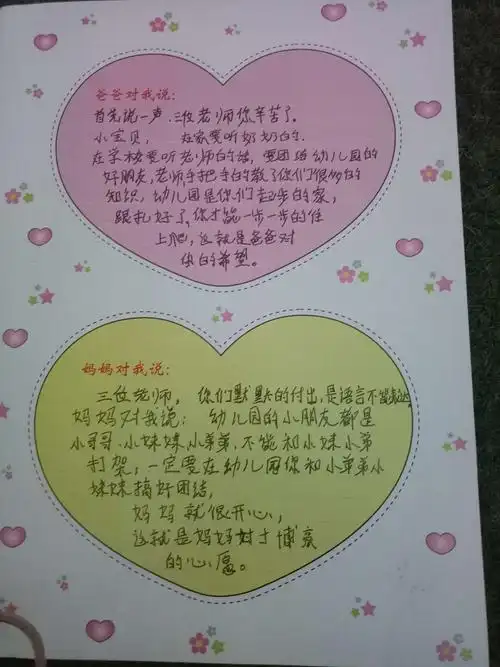 爸爸对我说:
首先说一声.三位老师你辛苦了.
小宝贝, 在家要听奶奶的.
在学校要听老师的话,要团结幼儿园的
好朋友,老师手把手的教了你们很多的
知识,幼儿园是你们起步的家,
跟扎好了,你才能一步一步的往
上爬,这就是爸爸对
你的希望。
妈妈对我说:
三位老师, 你们默默的付出,是语言不能表达,
妈妈对我说: 幼儿园的小朋友都是
小哥哥.小妹妹,小弟弟,不能和小妹小弟
打架,一定要在幼儿园你和小弟弟小
妹妹搞好团结,
妈妈就很开心,
这就是妈妈对于博
的心愿。